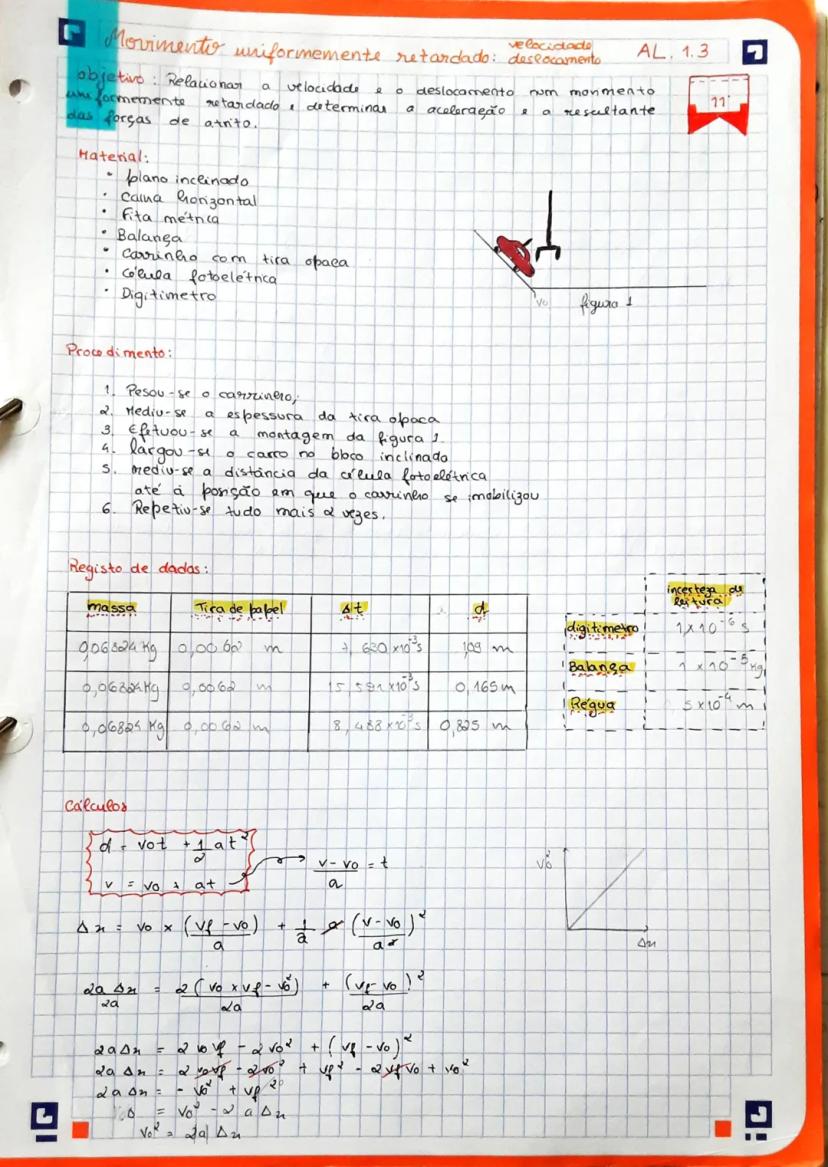 Movimento uniformemente retardado: velocidade deslocamento AL. 1.3
objetivo: Relacionar a velocidade e o deslocamento num movimento
uniformemente retardado e determinar a aceleração e a resultante
das forças de atrito.
11º
Material:
• plano inclinado
• Calha horizontal
• Fita métrica
• Balança
• Carrinho com tira opaca
• Célula fotoelétrica
• Digitimetro
v0 figura 1
Procedimento:
1. Pesou-se o carrinho;
2. Mediu-se a espessura da tira opaca
3. Efetuou-se a montagem da figura 1
4. largou-se o carro no bloco inclinado
5. mediu-se a distância da célula fotoelétrica
até á posição em que o carrinho se imobilizou
6. Repetiu-se tudo mais 2 vezes.
Registo de dados:
massa Tira de papel Δt d
0,06824 kg 0,0062 m 630 x10⁻³s 1,09 m
0,06824 kg 0,0062 m 15,591 x10⁻³s 0,165 m
0,06824 kg 0,0062 m 8,488 x10⁻³s 0,825 m
incerteza de leitura
digitimetro 1x10⁻⁶ s
Balança 1 x10⁻⁵ kg
Régua 5x10⁻⁴ m
Cálculos
d = v0t + 1/2 at²
v = v0 + at → (v - v0)/a = t
v0² Δx
Δx = v0 × (vf - v0)/a + 1/2 a (v - v0)²/a²
2a Δx/2a = 2(v0 × vf - v0²)/2a + (vf - v0)²/2a
2aΔx = 2 v0 vf - 2 v0² + (vf - v0)²
2a Δx = 2 v0vf - 2v0² + vf² - 2vf v0 + v0²
2a Δx = - v0² + vf²
= v0² - 2 a Δx
v0² = 2|a| Δx